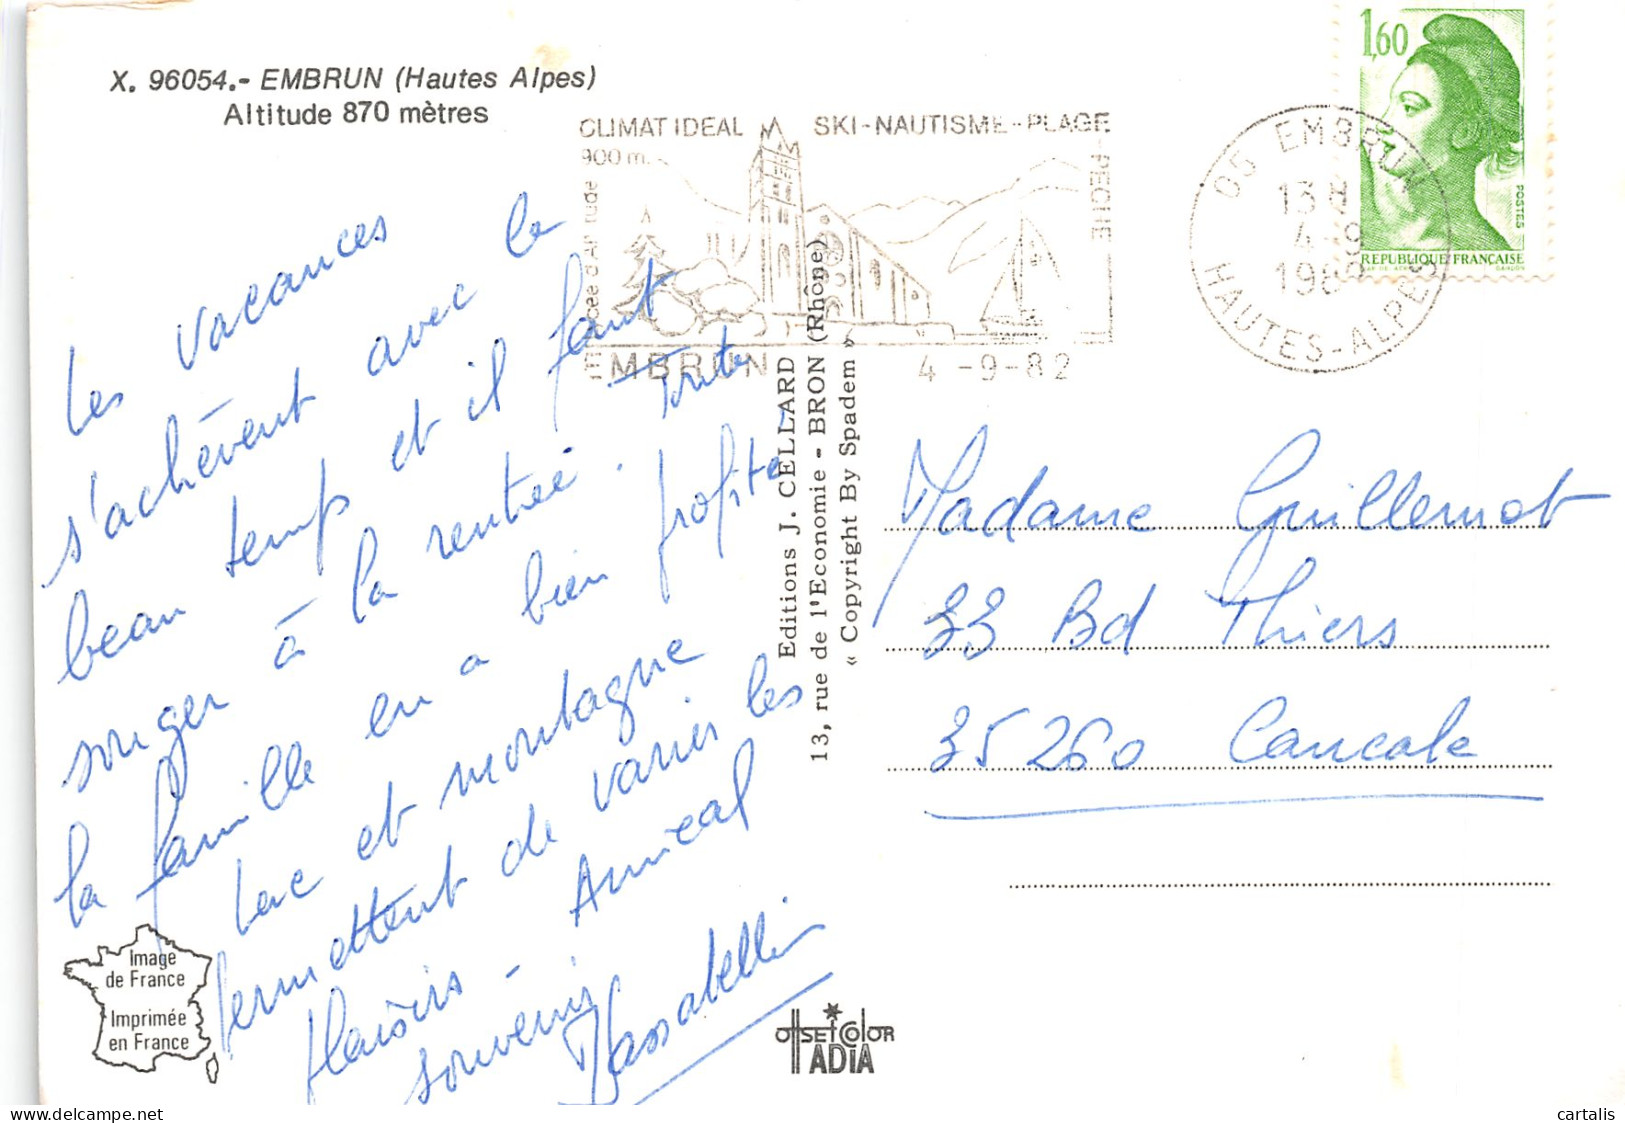 X. 96054.- EMBRUN (Hautes Alpes)
Altitude 870 mètres
CLIMAT IDEAL SKI-NAUTISME-PLAGE
-PECHE
900 m.
EMBRUN 4-9-82
05 EMBRUN
13H
4-9
198
HAUTES-ALPES
1,60
POSTES
REPUBLIQUE FRANÇAISE
Les vacances
s'achèvent avec le
beau temps et il faut
songer à la rentrée. Toute
la famille en a bien profité,
lac et montagne
permettent de varier les
plaisirs - Amical
souvenir
Editions J. CELLARD
13, rue de l'Economie - BRON (Rhône)
« Copyright By Spadem »
Madame Guillemot
33 Bd Thiers
35260 Cancale
Image
de France
Imprimée
en France
OFFSET COLOR
ADIA
delcampe.net
cartalis